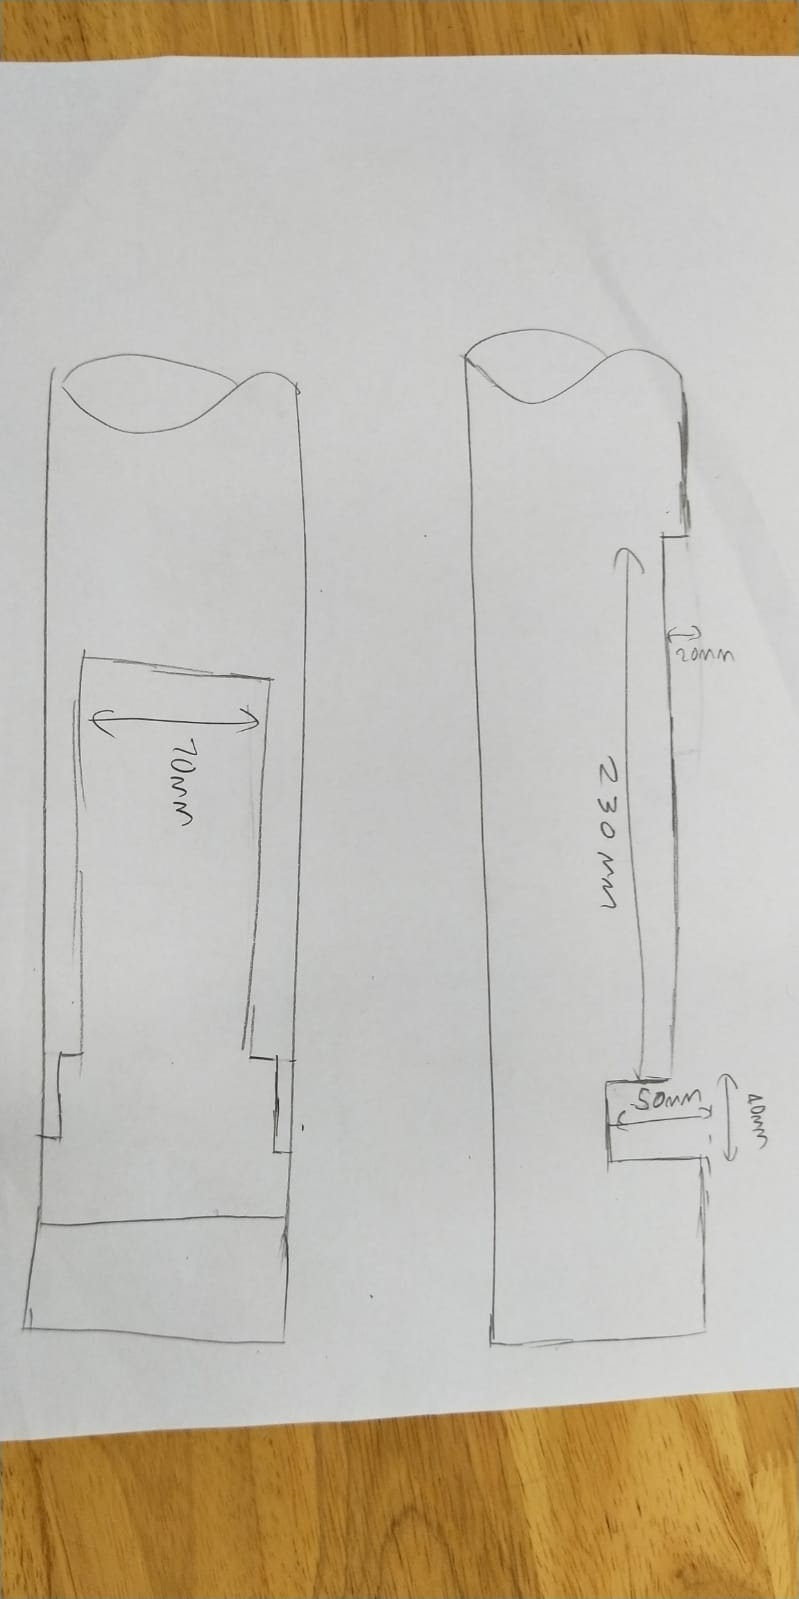 20mm
70mm
230mm
50mm
40mm